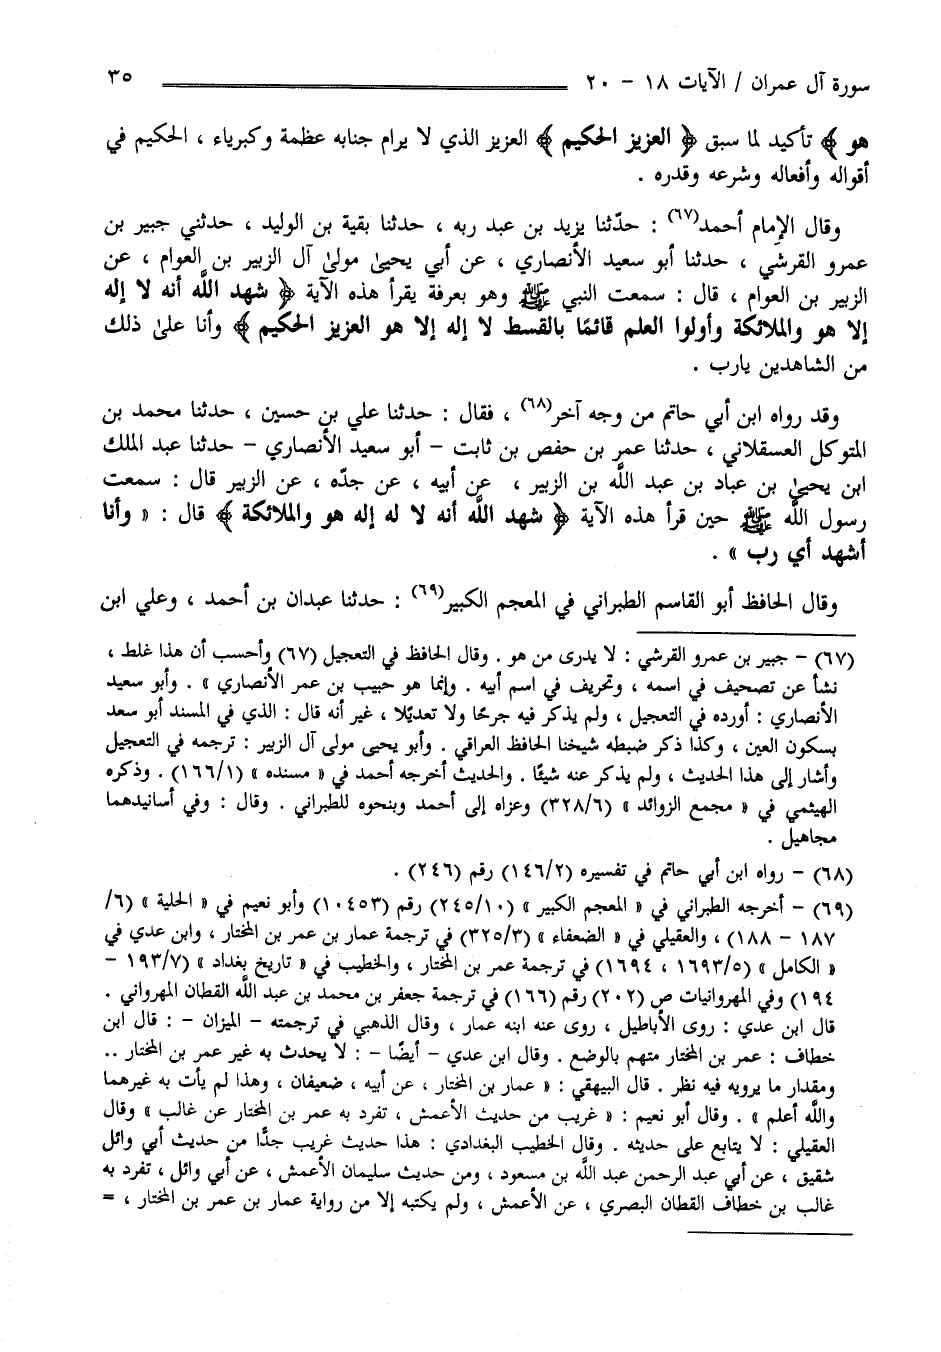 سورة آل عمران / الآيات ١٨ - ٢٠ ٣٥
هو ﴾ تأكيد لما سبق ﴿ العزيز الحكيم ﴾ العزيز الذي لا يرام جنابه عظمة وكبرياء ، الحكيم في
أقواله وأفعاله وشرعه وقدره .
وقال الإمام أحمد(٦٧) : حدّثنا يزيد بن عبد ربه ، حدثنا بقية بن الوليد ، حدثني جبير بن
عمرو القرشي ، حدثنا أبو سعيد الأنصاري ، عن أبي يحيىٰ مولىٰ آل الزبير بن العوام ، عن
الزبير بن العوام ، قال : سمعت النبي ﷺ وهو بعرفة يقرأ هذه الآية ﴿ شهد اللَّه أنه لا إله
إلا هو والملائكة وأولوا العلم قائمًا بالقسط لا إله إلا هو العزيز الحكيم ﴾ وأنا علىٰ ذلك
من الشاهدين يارب .
وقد رواه ابن أبي حاتم من وجه آخر(٦٨) ، فقال : حدثنا علي بن حسين ، حدثنا محمد بن
المتوكل العسقلاني ، حدثنا عمر بن حفص بن ثابت - أبو سعيد الأنصاري - حدثنا عبد الملك
ابن يحيىٰ بن عباد بن عبد اللَّه بن الزبير ، عن أبيه ، عن جدّه ، عن الزبير قال : سمعت
رسول اللَّه ﷺ حين قرأ هذه الآية ﴿ شهد اللَّه أنه لا له إله هو والملائكة ﴾ قال : « وأنا
أشهد أي رب » .
وقال الحافظ أبو القاسم الطبراني في المعجم الكبير(٦٩) : حدثنا عبدان بن أحمد ، وعلي ابن
(٦٧) - جبير بن عمرو القرشي : لا يدرى من هو . وقال الحافظ في التعجيل (٦٧) وأحسب أن هذا غلط ،
نشأ عن تصحيف في اسمه ، وتحريف في اسم أبيه . وإنما هو حبيب بن عمر الأنصاري » . وأبو سعيد
الأنصاري : أورده في التعجيل ، ولم يذكر فيه جرحًا ولا تعديلًا ، غير أنه قال : الذي في المسند أبو سعد
بسكون العين ، وكذا ذكر ضبطه شيخنا الحافظ العراقي . وأبو يحيى مولى آل الزبير : ترجمه في التعجيل
وأشار إلى هذا الحديث ، ولم يذكر عنه شيئًا . والحديث أخرجه أحمد في « مسنده » (١٦٦/١) . وذكره
الهيثمي في « مجمع الزوائد » (٣٢٨/٦) وعزاه إلى أحمد وبنحوه للطبراني . وقال : وفي أسانيدهما
مجاهيل .
(٦٨) - رواه ابن أبي حاتم في تفسيره (١٤٦/٢) رقم (٢٤٦) .
(٦٩) - أخرجه الطبراني في « المعجم الكبير » (٢٤٥/١٠) رقم (١٠٤٥٣) وأبو نعيم في « الحلية » (٦/
١٨٧ - ١٨٨) ، والعقيلي في « الضعفاء » (٣٢٥/٣) في ترجمة عمار بن عمر بن المختار ، وابن عدي في
« الكامل » (١٦٩٣/٥ ، ١٦٩٤) في ترجمة عمر بن المختار ، والخطيب في « تاريخ بغداد » (١٩٣/٧ -
١٩٤) وفي المهروانيات ص (٢٠٢) رقم (١٦٦) في ترجمة جعفر بن محمد بن عبد اللَّه القطان المهرواني .
قال ابن عدي : روى الأباطيل ، روى عنه ابنه عمار ، وقال الذهبي في ترجمته - الميزان - : قال ابن
خطاف : عمر بن المختار متهم بالوضع . وقال ابن عدي - أيضًا - : لا يحدث به غير عمر بن المختار ..
ومقدار ما يرويه فيه نظر . قال البيهقي : « عمار بن المختار ، عن أبيه ، ضعيفان ، وهذا لم يأت به غيرهما
واللَّه أعلم » . وقال أبو نعيم : « غريب من حديث الأعمش ، تفرد به عمر بن المختار عن غالب » وقال
العقيلي : لا يتابع على حديثه . وقال الخطيب البغدادي : هذا حديث غريب جدًّا من حديث أبي وائل
شقيق ، عن أبي عبد الرحمن عبد اللَّه بن مسعود ، ومن حديث سليمان الأعمش ، عن أبي وائل ، تفرد به
غالب بن خطاف القطان البصري ، عن الأعمش ، ولم يكتبه إلا من رواية عمار بن عمر بن المختار ، =